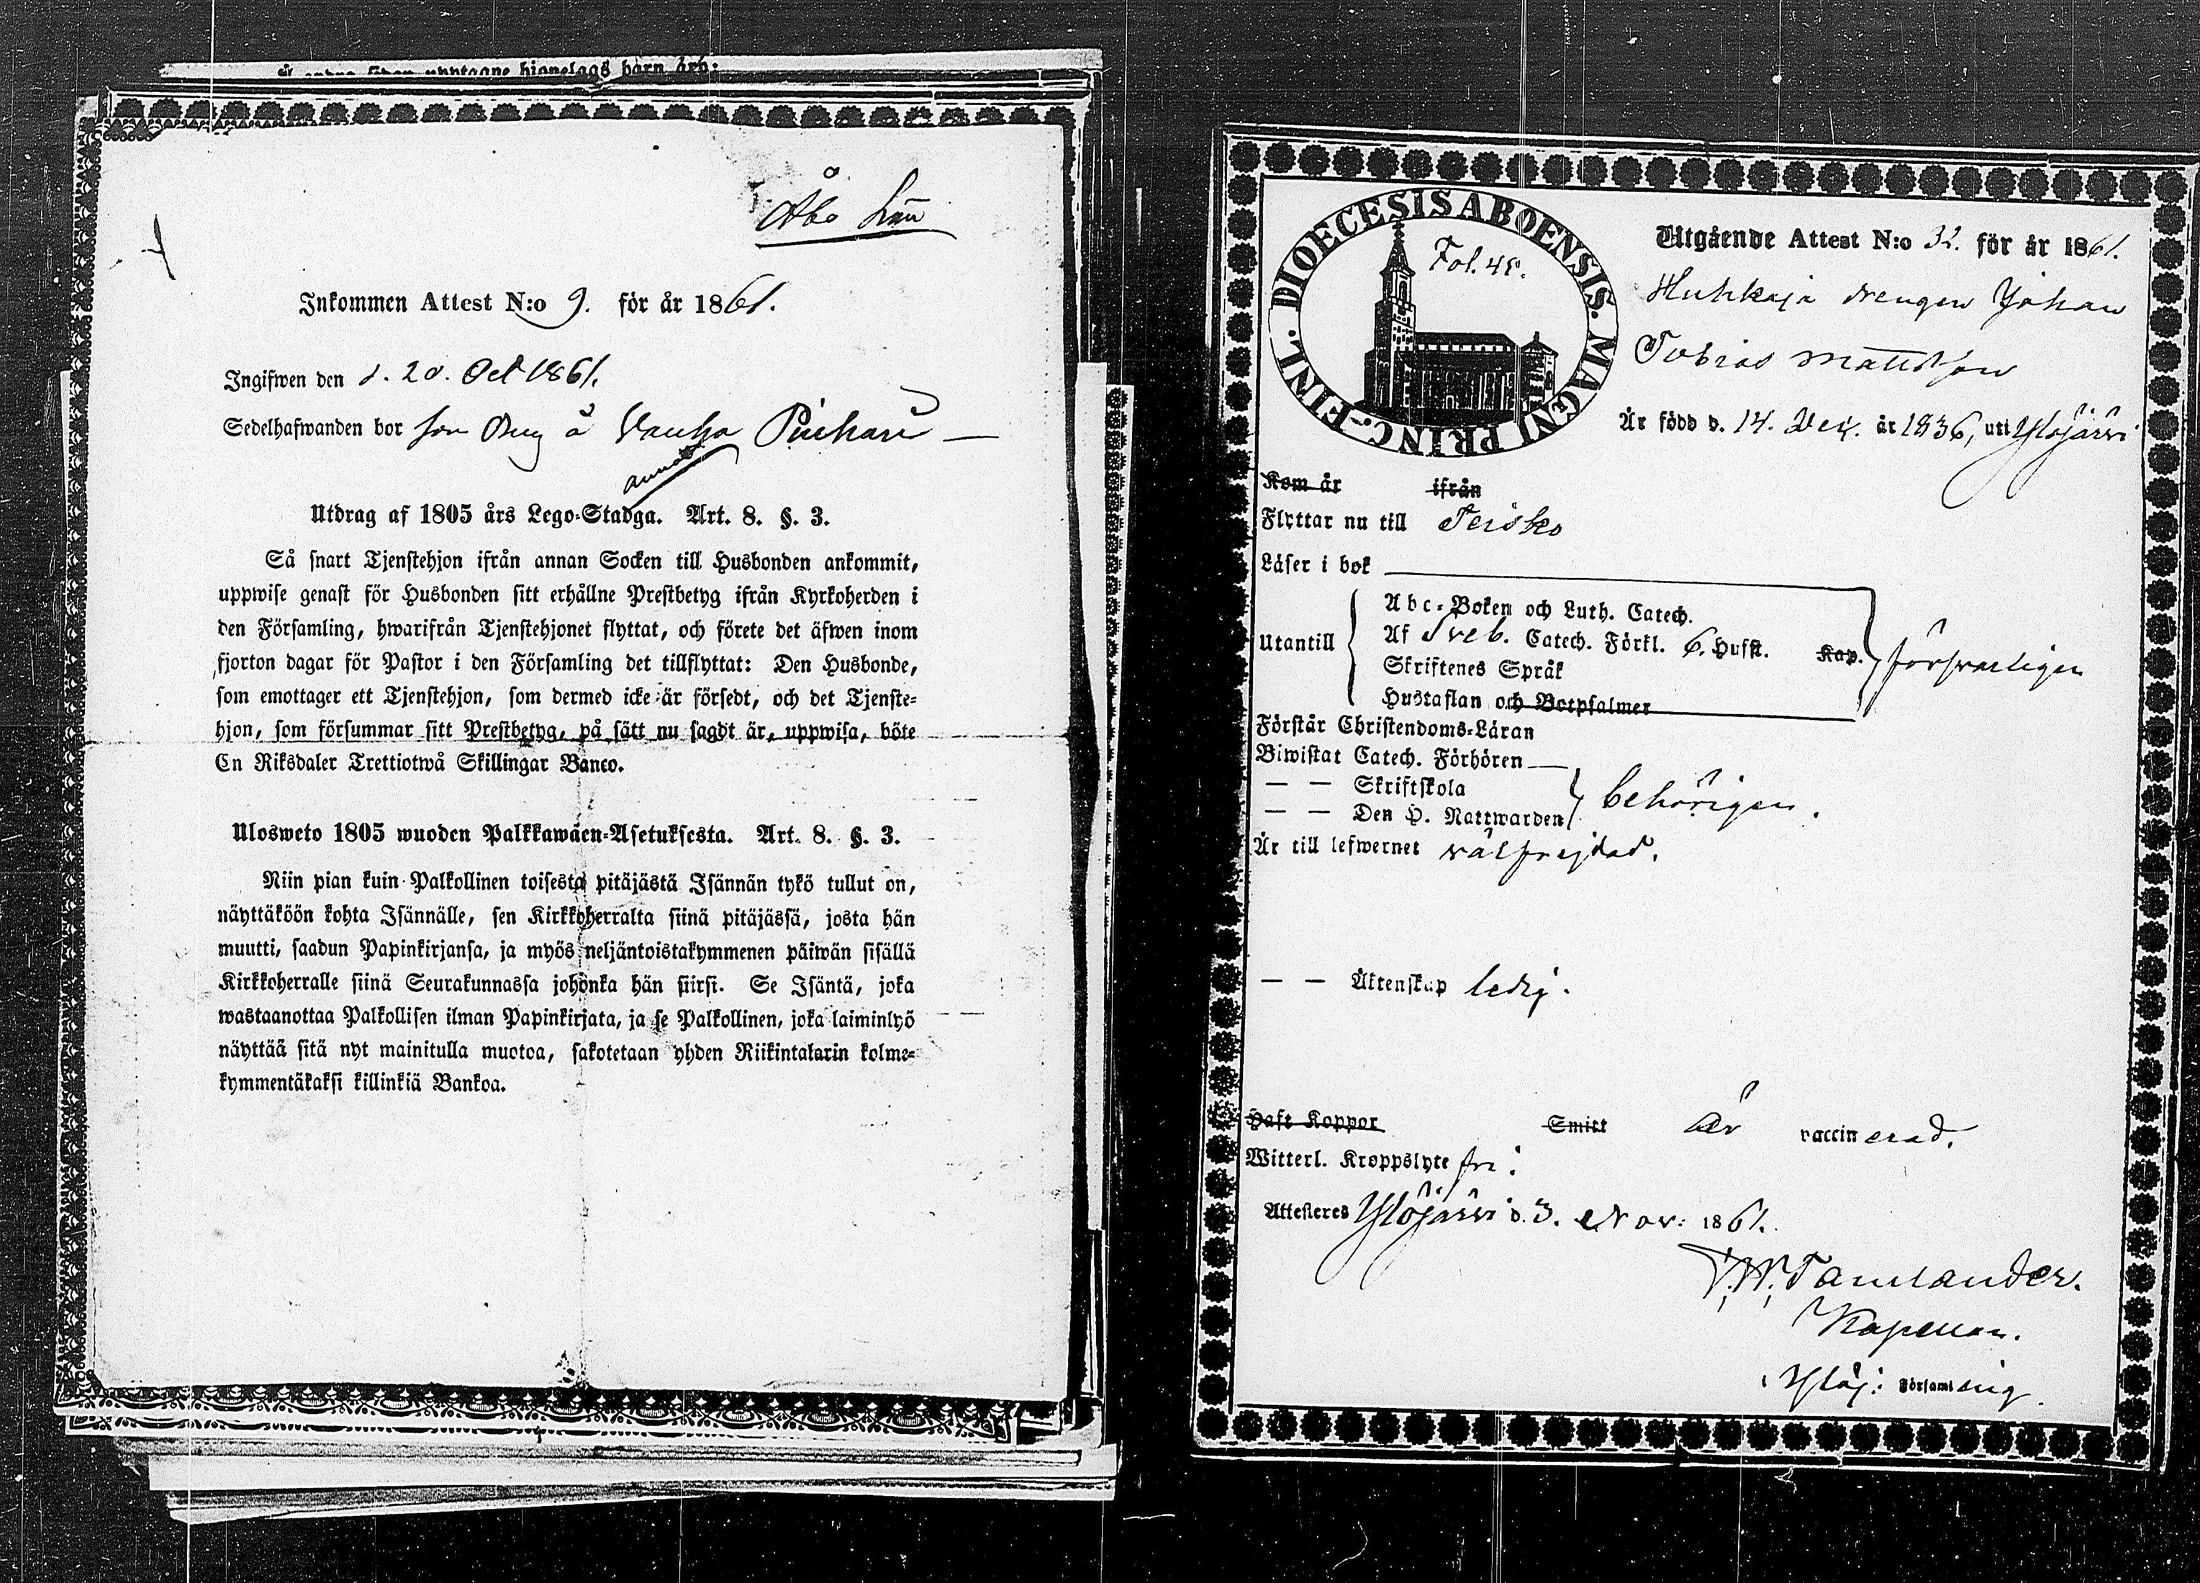 Åbo Län
Inkommen Attest N:o 9. för år 1861.
Ingifwen den d. 20. Oct 1861.
Sedelhafwanden bor som Dreng å Vanha Pirhari
Utdrag af 1805 års Lego-Stadga. Art. 8. §. 3.
Så snart Tjenstehjon ifrån annan Socken till Husbonden ankommit,
uppwise genast för Husbonden sitt erhållne Prestbetyg ifrån Kyrkoherden i
den Församling, hwarifrån Tjenstehjonet flyttat, och förete det äfwen inom
fjorton dagar för Pastor i den Församling det tillflyttat: Den Husbonde,
som emottager ett Tjenstehjon, som dermed icke är försedt, och det Tjenste-
hjon, som försummar sitt Prestbetyg, på sätt nu sagdt är, uppwisa, böte
En Riksdaler Trettiotwå Skillingar Banco.
Ulosweto 1805 wuoden Palkkawäen-Asetuksesta. Art. 8. §. 3.
Niin pian kuin Palkollinen toisesta pitäjästä Isännän tykö tullut on,
näyttäköön kohta Isännälle, sen Kirkkoherralta siinä pitäjässä, josta hän
muutti, saadun Papinkirjansa, ja myös neljäntoistakymmenen päiwän sisällä
Kirkkoherralle siinä Seurakunnassa johonka hän siirsi. Se Isäntä, joka
wastaanottaa Palkollisen ilman Papinkirjata, ja se Palkollinen, joka laiminlyö
näyttää sitä nyt mainitulla muotoa, sakotetaan yhden Riikintalarin kolme-
kymmentäkaksi killinkiä Bankoa.
DIOECESIS ABOENSIS. MAGNI PRINC.-FINL.
Fol. 48.
Utgående Attest N:o 32. för år 1861.
Huhkaja drengen Johan
Tobias Mattsson
Är född d. 14. Dec. år 1836, uti Ylöjärvi
Kom år ifrån
Flyttar nu till Teisko
Läser i bok
Utantill
Abc-Boken och Luth. Catech.
Af Sveb. Catech. Förkl. 6. Hufst. Kap.
Skriftenes Språk
Hustaflan och Botpsalmer
försvarligen
Förstår Christendoms-Läran
Biwistat Catech. Förhören
— — Skriftskola
— — Den H. Nattwarden
behörigen.
Är till lefwernet välfrejdad.
— — Äktenskap ledig.
Haft Koppor Smitt är vaccinerad.
Witterl. Kroppslyte fri.
Attesteres Ylöjärvi d. 3. Nov: 1861.
Tamlander.
Kapellan.
i Ylöj: Församling.